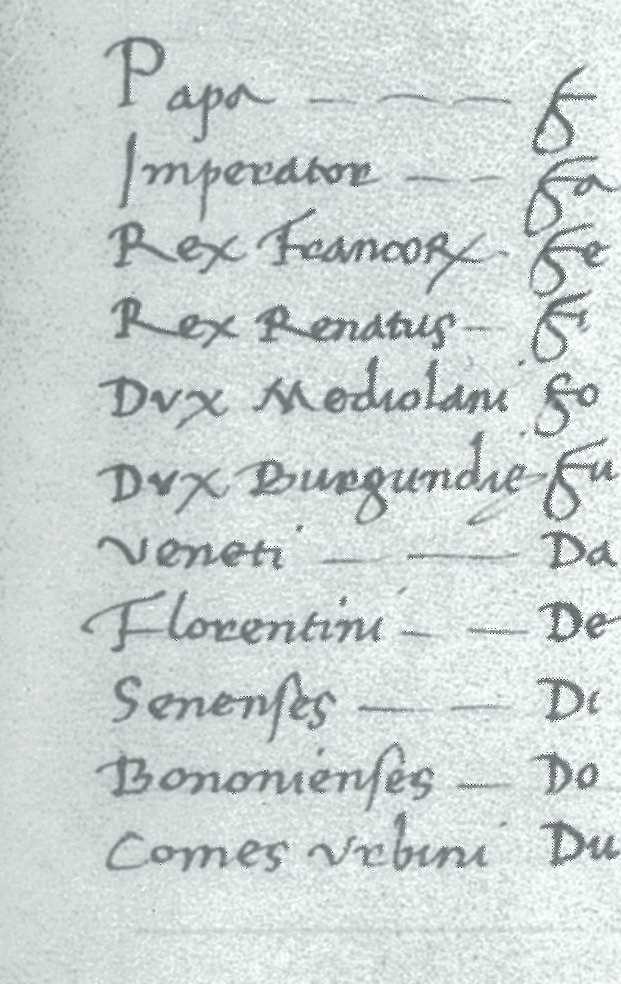 Papa — — —
Imperator — —
Rex Francoꝝ -
Rex Renatus —
Dux Mediolani
Dux Burgundię -
Veneti — — Da
Florentini — — De
Senenſes — — Di
Bononienſes — Do
Comes Vrbini Du